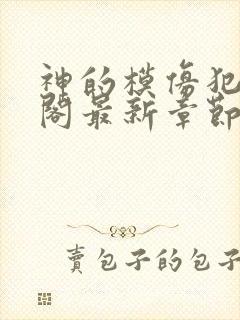 神的模傷犯
閣最新章節
賣包子的包子